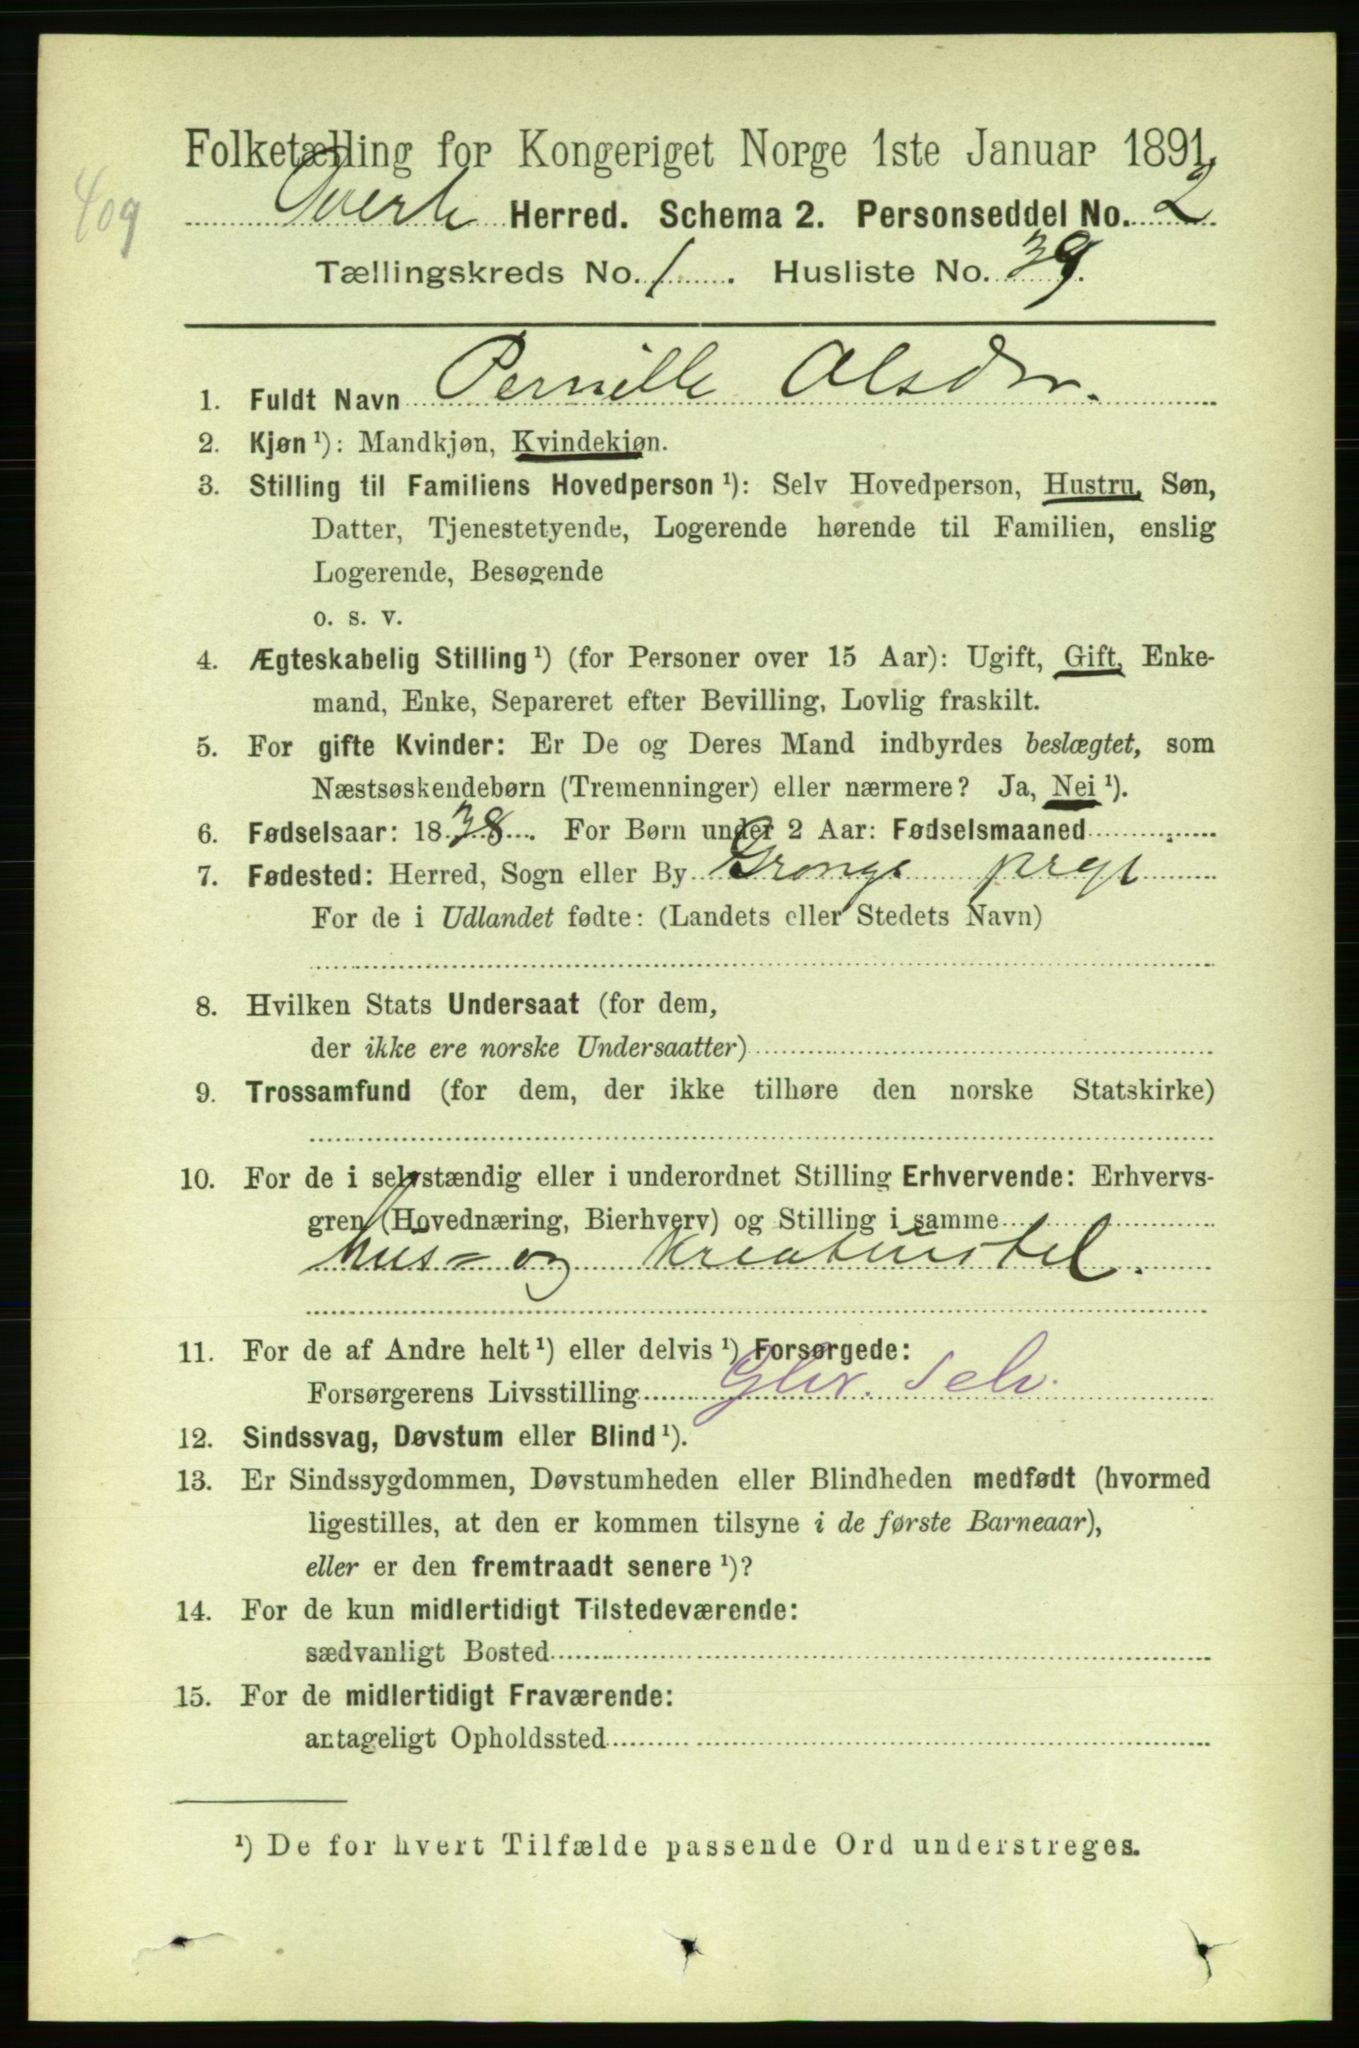 Folketælling for Kongeriget Norge 1ste Januar 1891.
409
Herred. Schema 2. Personseddel No. 2
Tællingskreds No. 1. Husliste No. 39.
1. Fuldt Navn Pernille Olsdtr.
2. Kjøn ¹): Mandkjøn, Kvindekjøn.
3. Stilling til Familiens Hovedperson ¹): Selv Hovedperson, Hustru, Søn,
Datter, Tjenestetyende, Logerende hørende til Familien, enslig
Logerende, Besøgende
o. s. v.
4. Ægteskabelig Stilling ¹) (for Personer over 15 Aar): Ugift, Gift, Enke-
mand, Enke, Separeret efter Bevilling, Lovlig fraskilt.
5. For gifte Kvinder: Er De og Deres Mand indbyrdes beslægtet, som
Næstsøskendebørn (Tremenninger) eller nærmere? Ja, Nei ¹).
6. Fødselsaar: 1838. For Børn under 2 Aar: Fødselsmaaned
7. Fødested: Herred, Sogn eller By Grongs prgl
For de i Udlandet fødte: (Landets eller Stedets Navn)
8. Hvilken Stats Undersaat (for dem,
der ikke ere norske Undersaatter)
9. Trossamfund (for dem, der ikke tilhøre den norske Statskirke)
10. For de i selvstændig eller i underordnet Stilling Erhvervende: Erhvervs-
gren (Hovednæring, Bierhverv) og Stilling i samme
hus= og kreaturstel.
11. For de af Andre helt ¹) eller delvis ¹) Forsørgede:
Forsørgerens Livsstilling Gbr. Selv.
12. Sindssvag, Døvstum eller Blind ¹).
13. Er Sindssygdommen, Døvstumheden eller Blindheden medfødt (hvormed
ligestilles, at den er kommen tilsyne i de første Barneaar),
eller er den fremtraadt senere ¹)?
14. For de kun midlertidigt Tilstedeværende:
sædvanligt Bosted
15. For de midlertidigt Fraværende:
antageligt Opholdssted
¹) De for hvert Tilfælde passende Ord understreges.